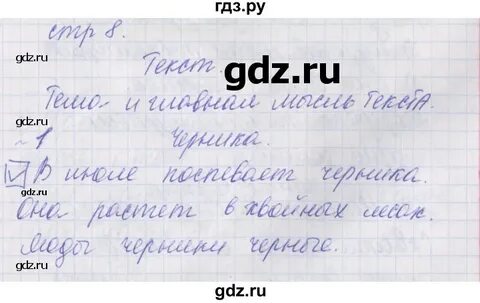 гдз.ру
стр 8.
Текст.
gdz.ru
Тема и главная мысль текста.
~1 Черника.
В июле поспевает черника.
Она растет в хвойных лесах.
Плоды черники черные.
gdz.ru
gdz.ru
gdz.ru
gdz.ru